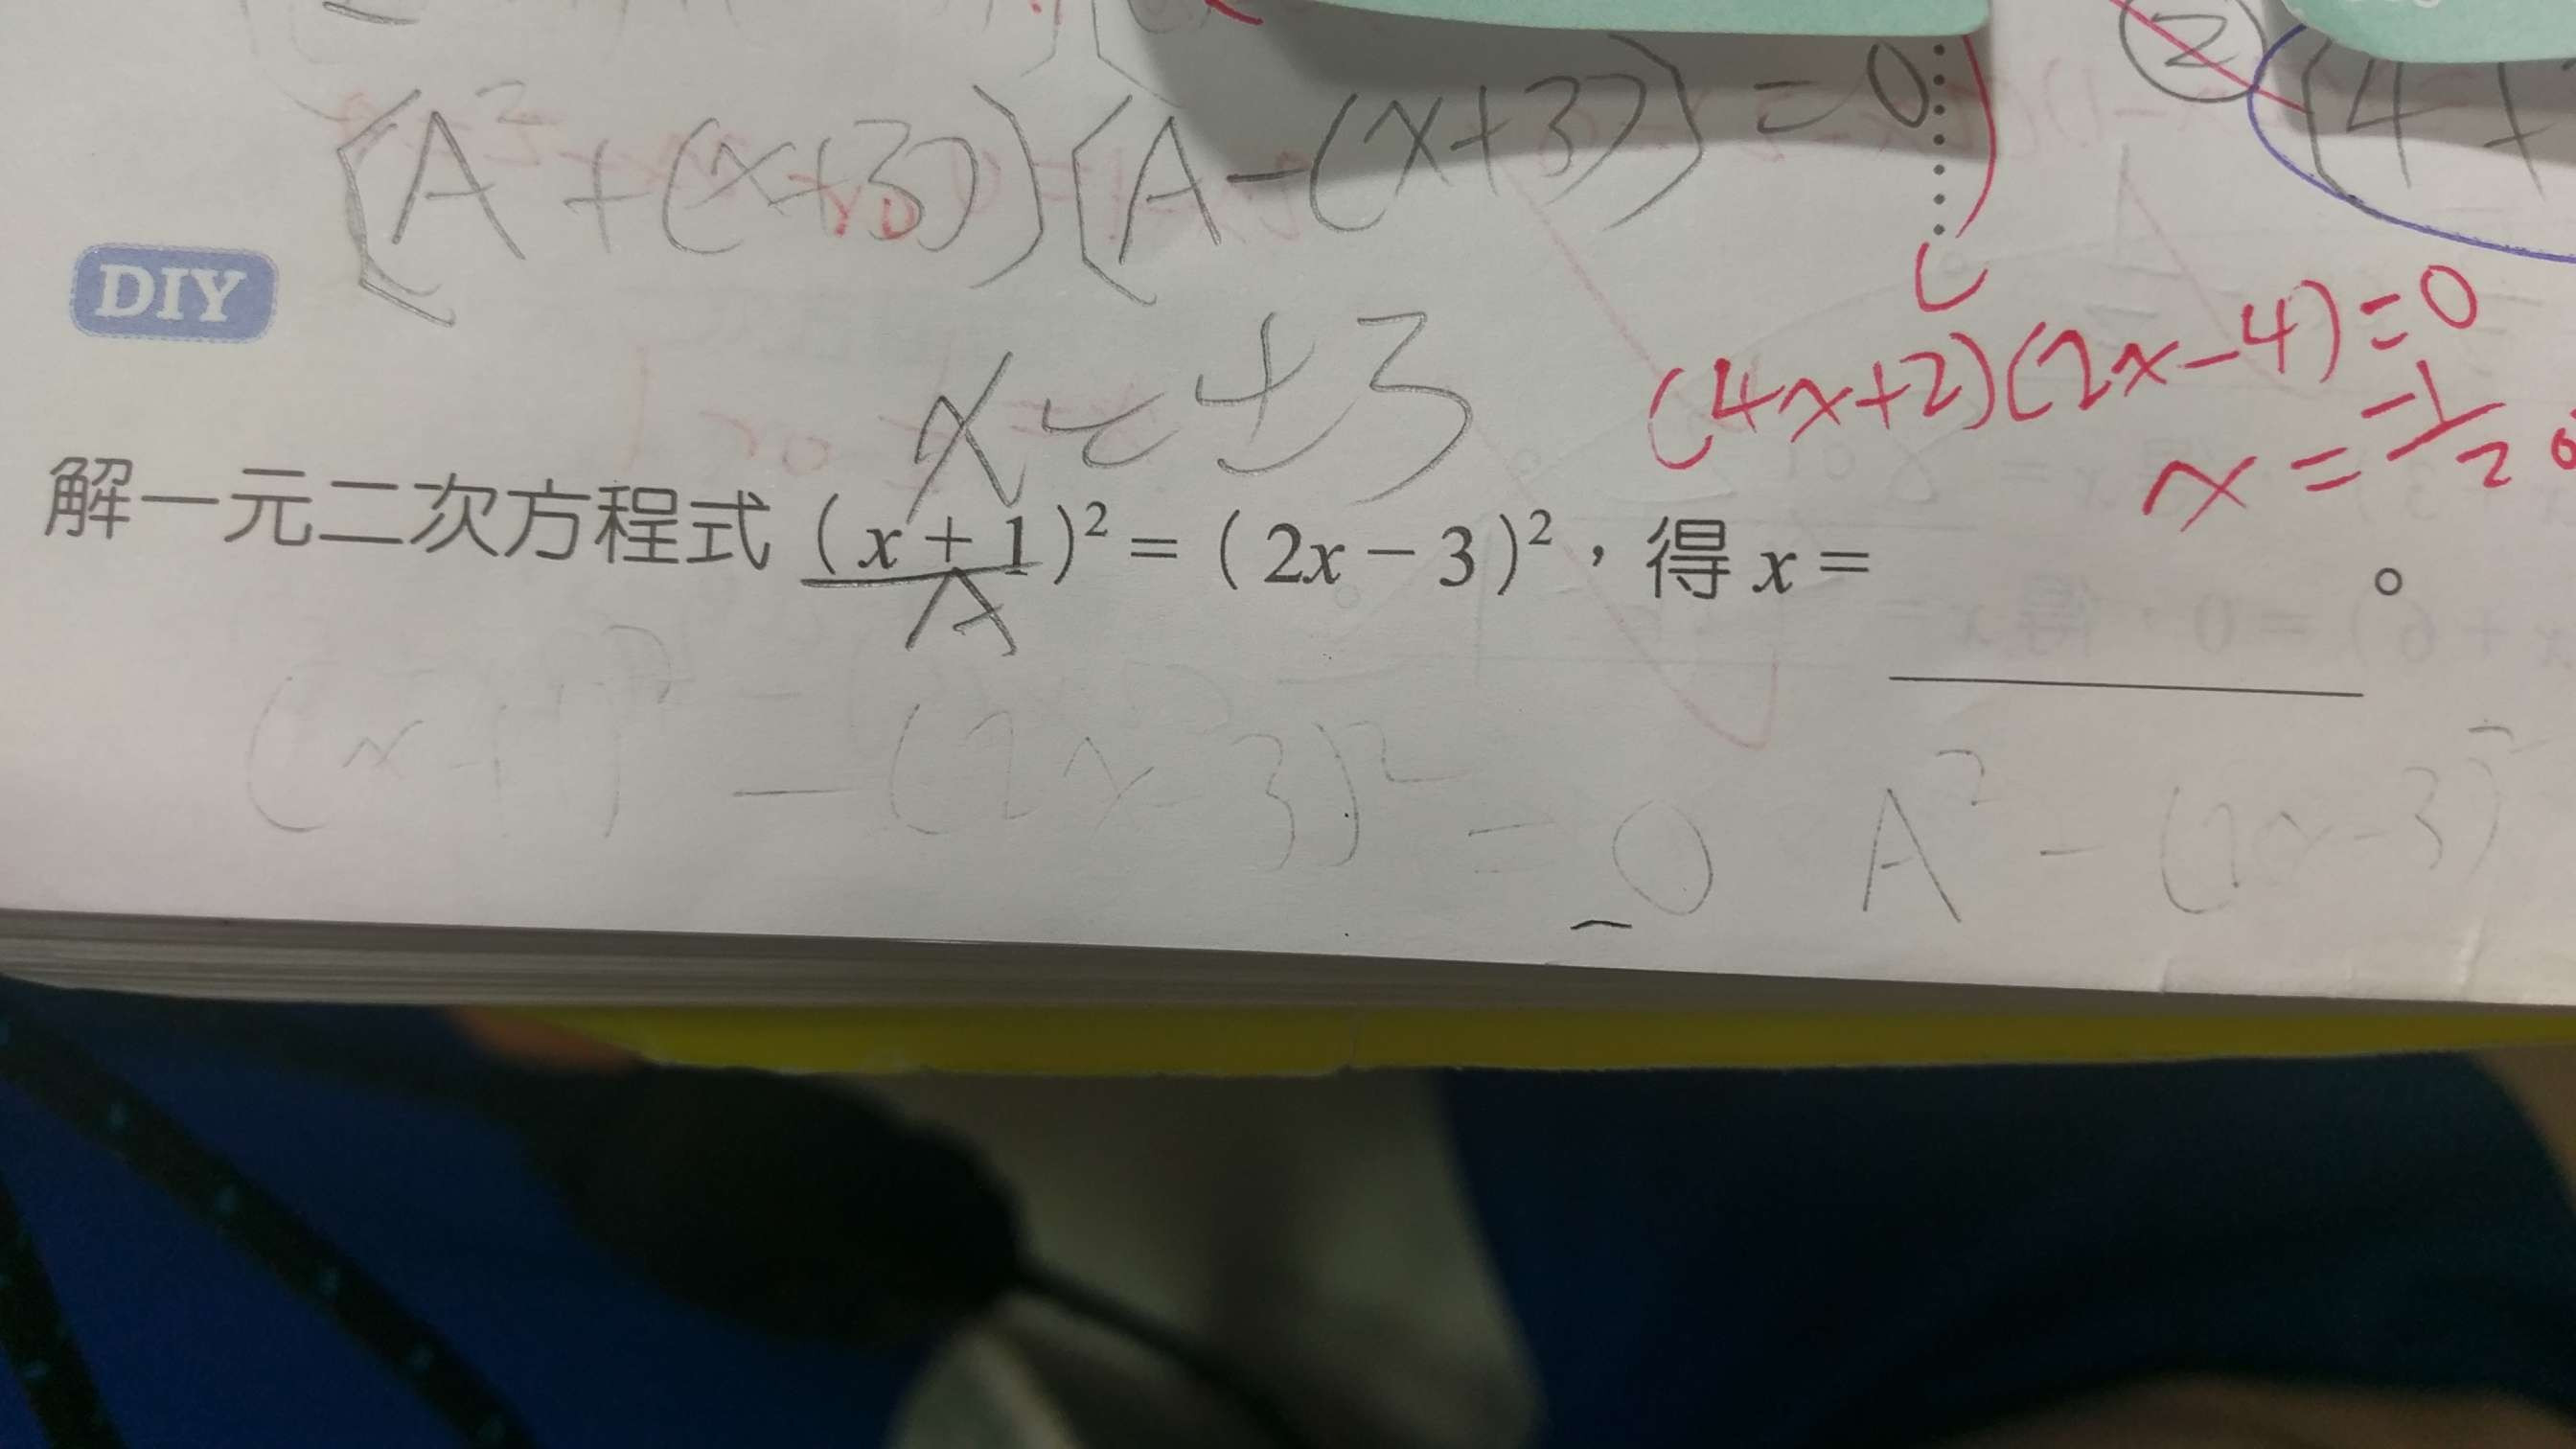 {A²+(x+3)}{A-(x+3)}=0
DIY
x=±3
(4x+2)(2x-4)=0
x=-1/2
解一元二次方程式 (x+1)²=(2x-3)²,得x=                。
A
(x+1)²-(2x-3)²=0 A²-(2x-3)²